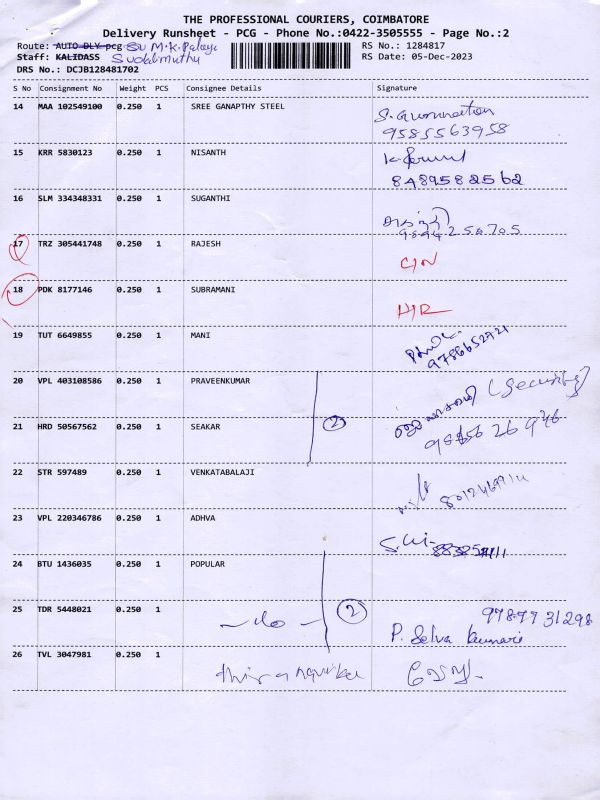 THE PROFESSIONAL COURIERS, COIMBATORE
Delivery Runsheet - PCG - Phone No.:0422-3505555 - Page No.:2
Route: AUTO DLY pcg SV M.K. Palaya RS No.: 1284817
Staff: KALIDASS Sudalmuthu RS Date: 05-Dec-2023
DRS No.: DCJB128481702
S No Consignment No Weight PCS Consignee Details Signature
14 MAA 102549100 0.250 1 SREE GANAPTHY STEEL
9585563958
15 KRR 5830123 0.250 1 NISANTH
8489582562
16 SLM 334348331 0.250 1 SUGANTHI
9894256705
17 TRZ 305441748 0.250 1 RAJESH C/N
18 PDK 8177146 0.250 1 SUBRAMANI
19 TUT 6649855 0.250 1 MANI
9786652921
20 VPL 403108586 0.250 1 PRAVEENKUMAR (Security)
21 HRD 50567562 0.250 1 SEAKAR 2
22 STR 597489 0.250 1 VENKATABALAJI
23 VPL 220346786 0.250 1 ADHVA
24 BTU 1436035 0.250 1 POPULAR
25 TDR 5448021 0.250 1 -do- 2 9789731298
P. Selva kumari
26 TVL 3047981 0.250 1